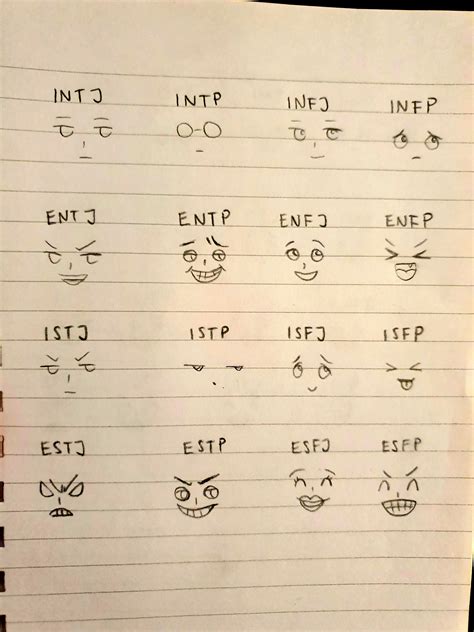 INTJ INTP INFJ INFP
ENTJ ENTP ENFJ ENFP
ISTJ ISTP ISFJ ISFP
ESTJ ESTP ESFJ ESFP